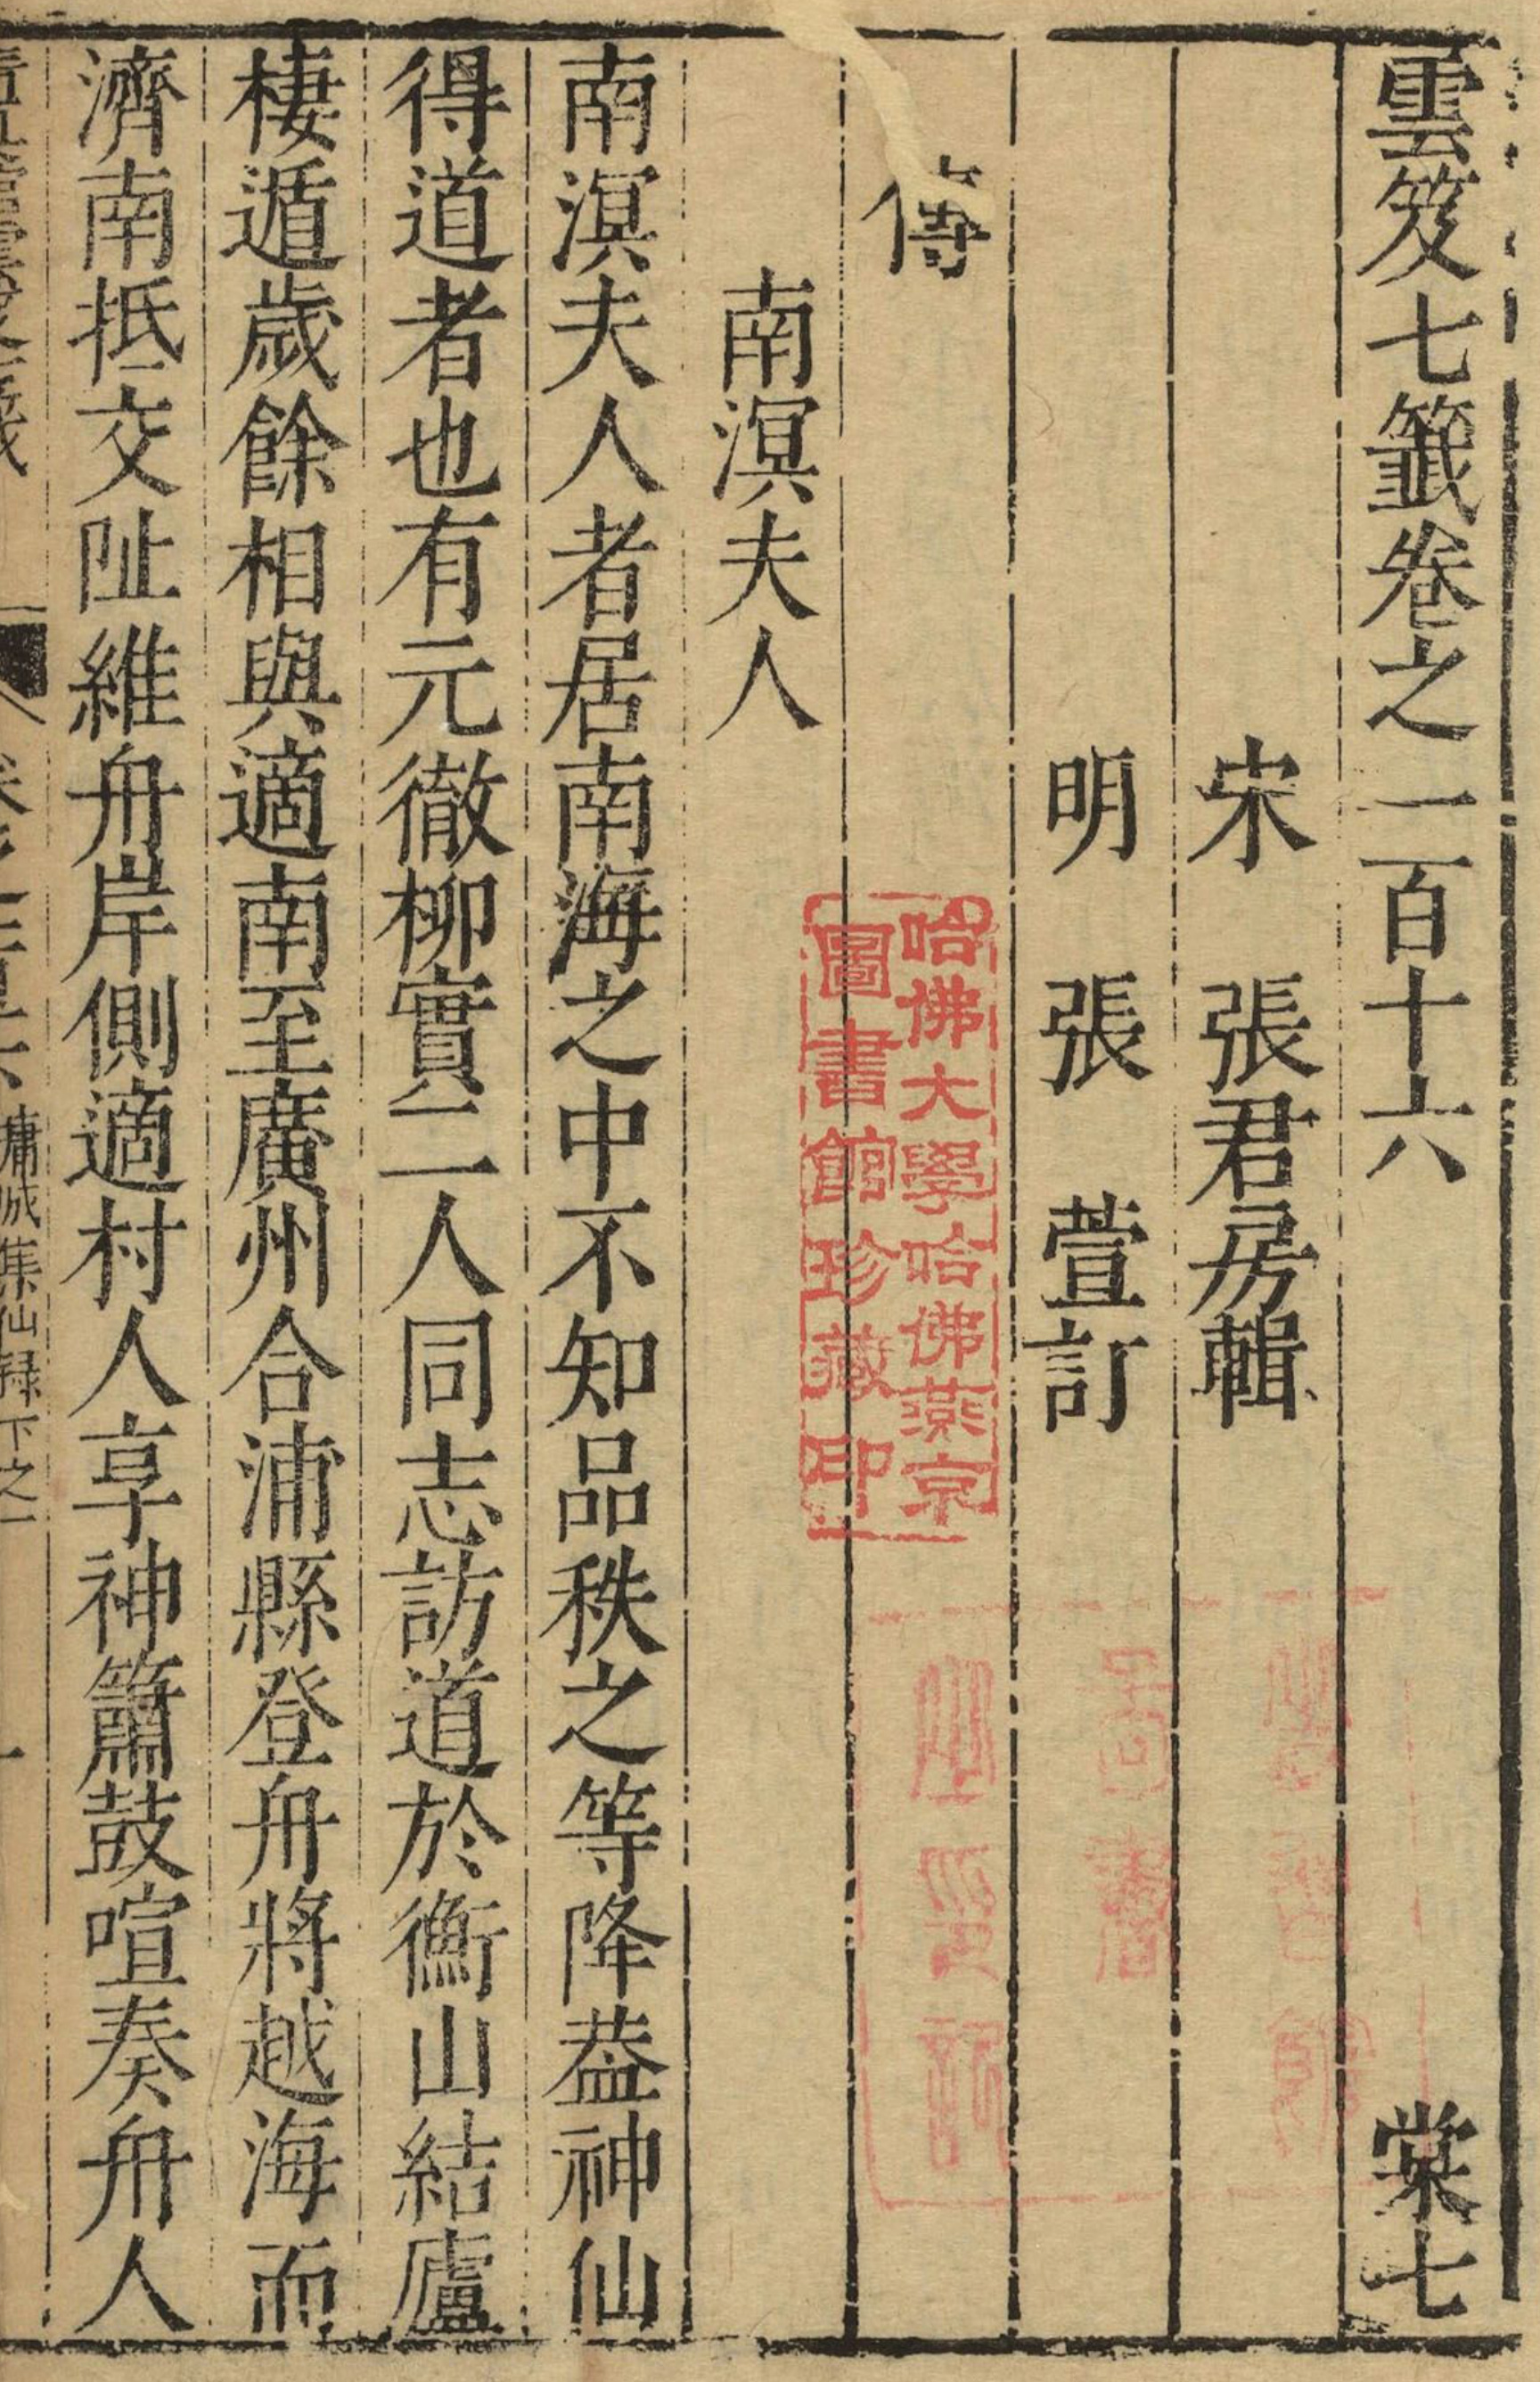 雲笈七籤卷之一百十六 棠七
宋 張君房輯
明 張 萱訂
傳
南溟夫人
南溟夫人者居南海之中不知品秩之等降葢神仙
得道者也有元徹柳實二人同志訪道於衡山結廬
棲遁歲餘相與適南至廣州合浦縣登舟將越海而
濟南抵交阯維舟岸側適村人享神簫鼓喧奏舟人
墉城集仙録下之一
哈佛大學哈佛燕京
圖書館珍藏印